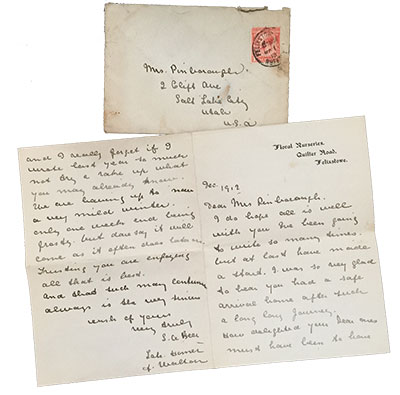 Mrs. Pinborough
2 Clift Ave
Salt Lake City
Utah
U.S.A
Floral Nurseries,
Quilter Road,
Felixstowe.
Dec 1912
Dear Mrs Pinborough,
I do hope all is well
with you I've been going
to write so many times.
but at last have made
a start. I was so very glad
to hear you had a safe
arrival home after such
a long long journey.
How delighted your Dear ones
must have been to have
and I really forget if I
wrote last year so must
not try & rake up what
you may already know.
We are having up to now
a very mild winter.
only one weeks end being
frosty, but dare say it will
come as it often does later.
Trusting you are enjoying
all that is best.
and that such may continue
always is the very sincere
wish of yours
very truly
S. A.
Late
of Walton